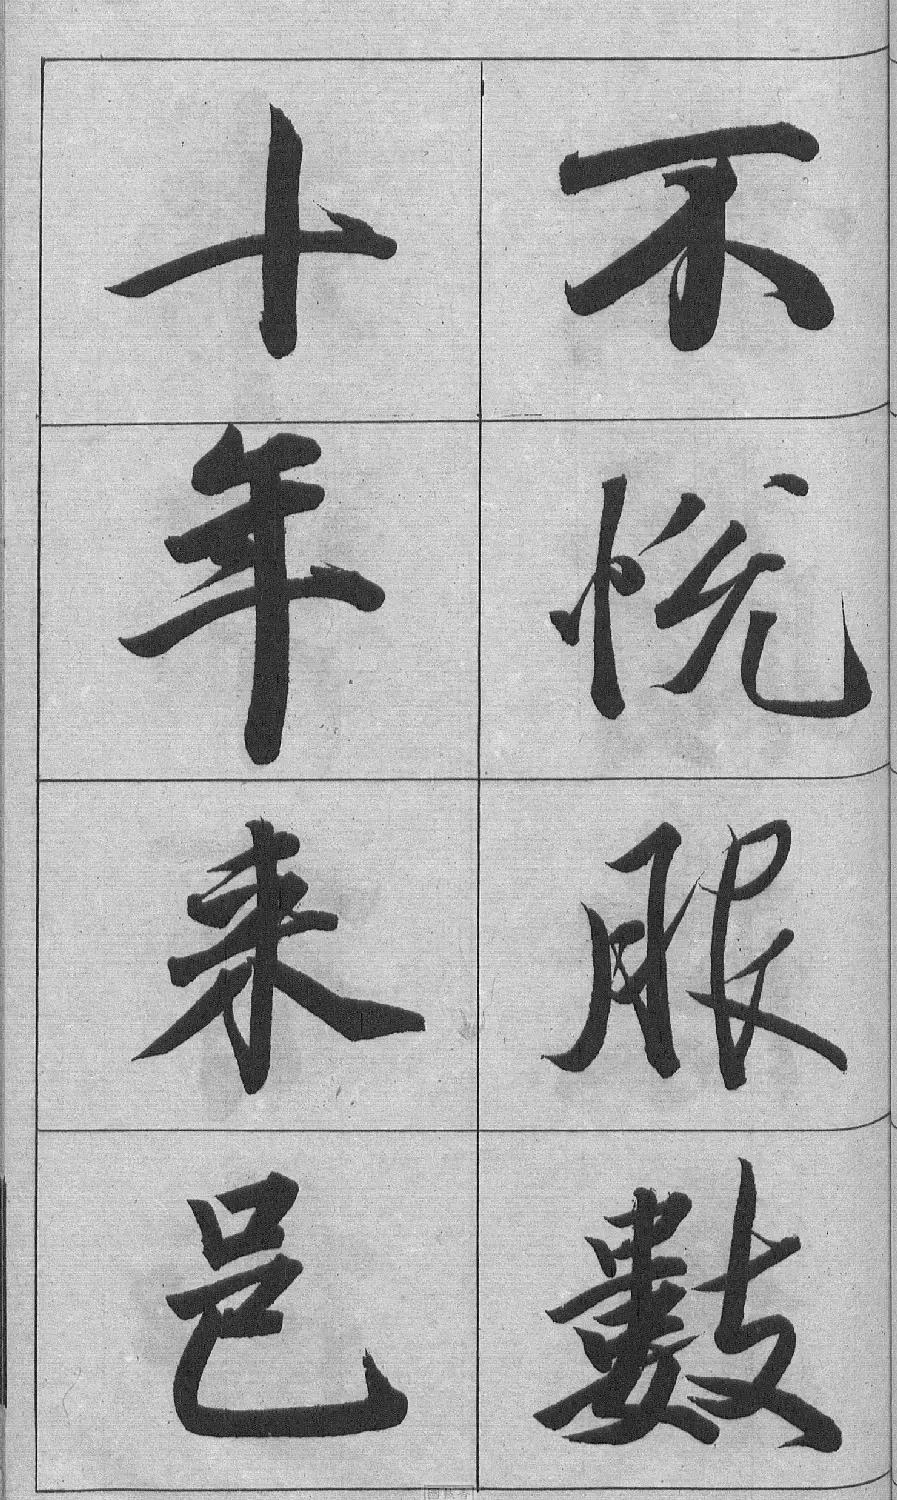 不悅服數
十年來邑